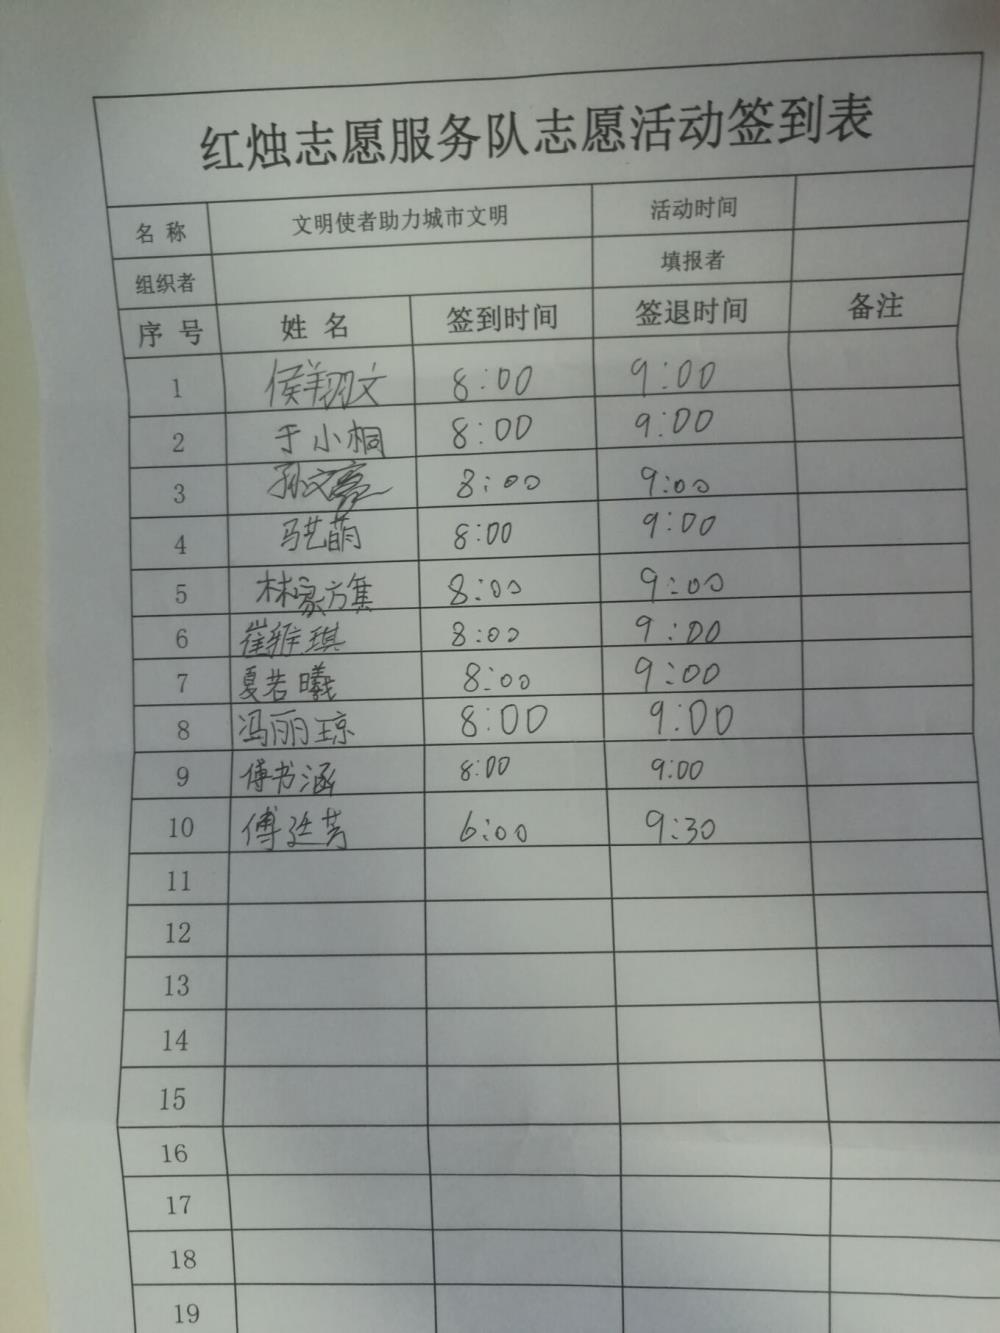 红烛志愿服务队志愿活动签到表
名 称 文明使者助力城市文明 活动时间
组织者 填报者
序 号 姓 名 签到时间 签退时间 备注
1 侯翔文 8:00 9:00
2 于小桐 8:00 9:00
3 孙文亮 8:00 9:00
4 马艺萌 8:00 9:00
5 林家方集 8:00 9:00
6 崔维琪 8:00 9:00
7 夏若曦 8:00 9:00
8 冯丽琼 8:00 9:00
9 傅书涵 8:00 9:00
10 傅廷芳 6:00 9:30
11
12
13
14
15
16
17
18
19